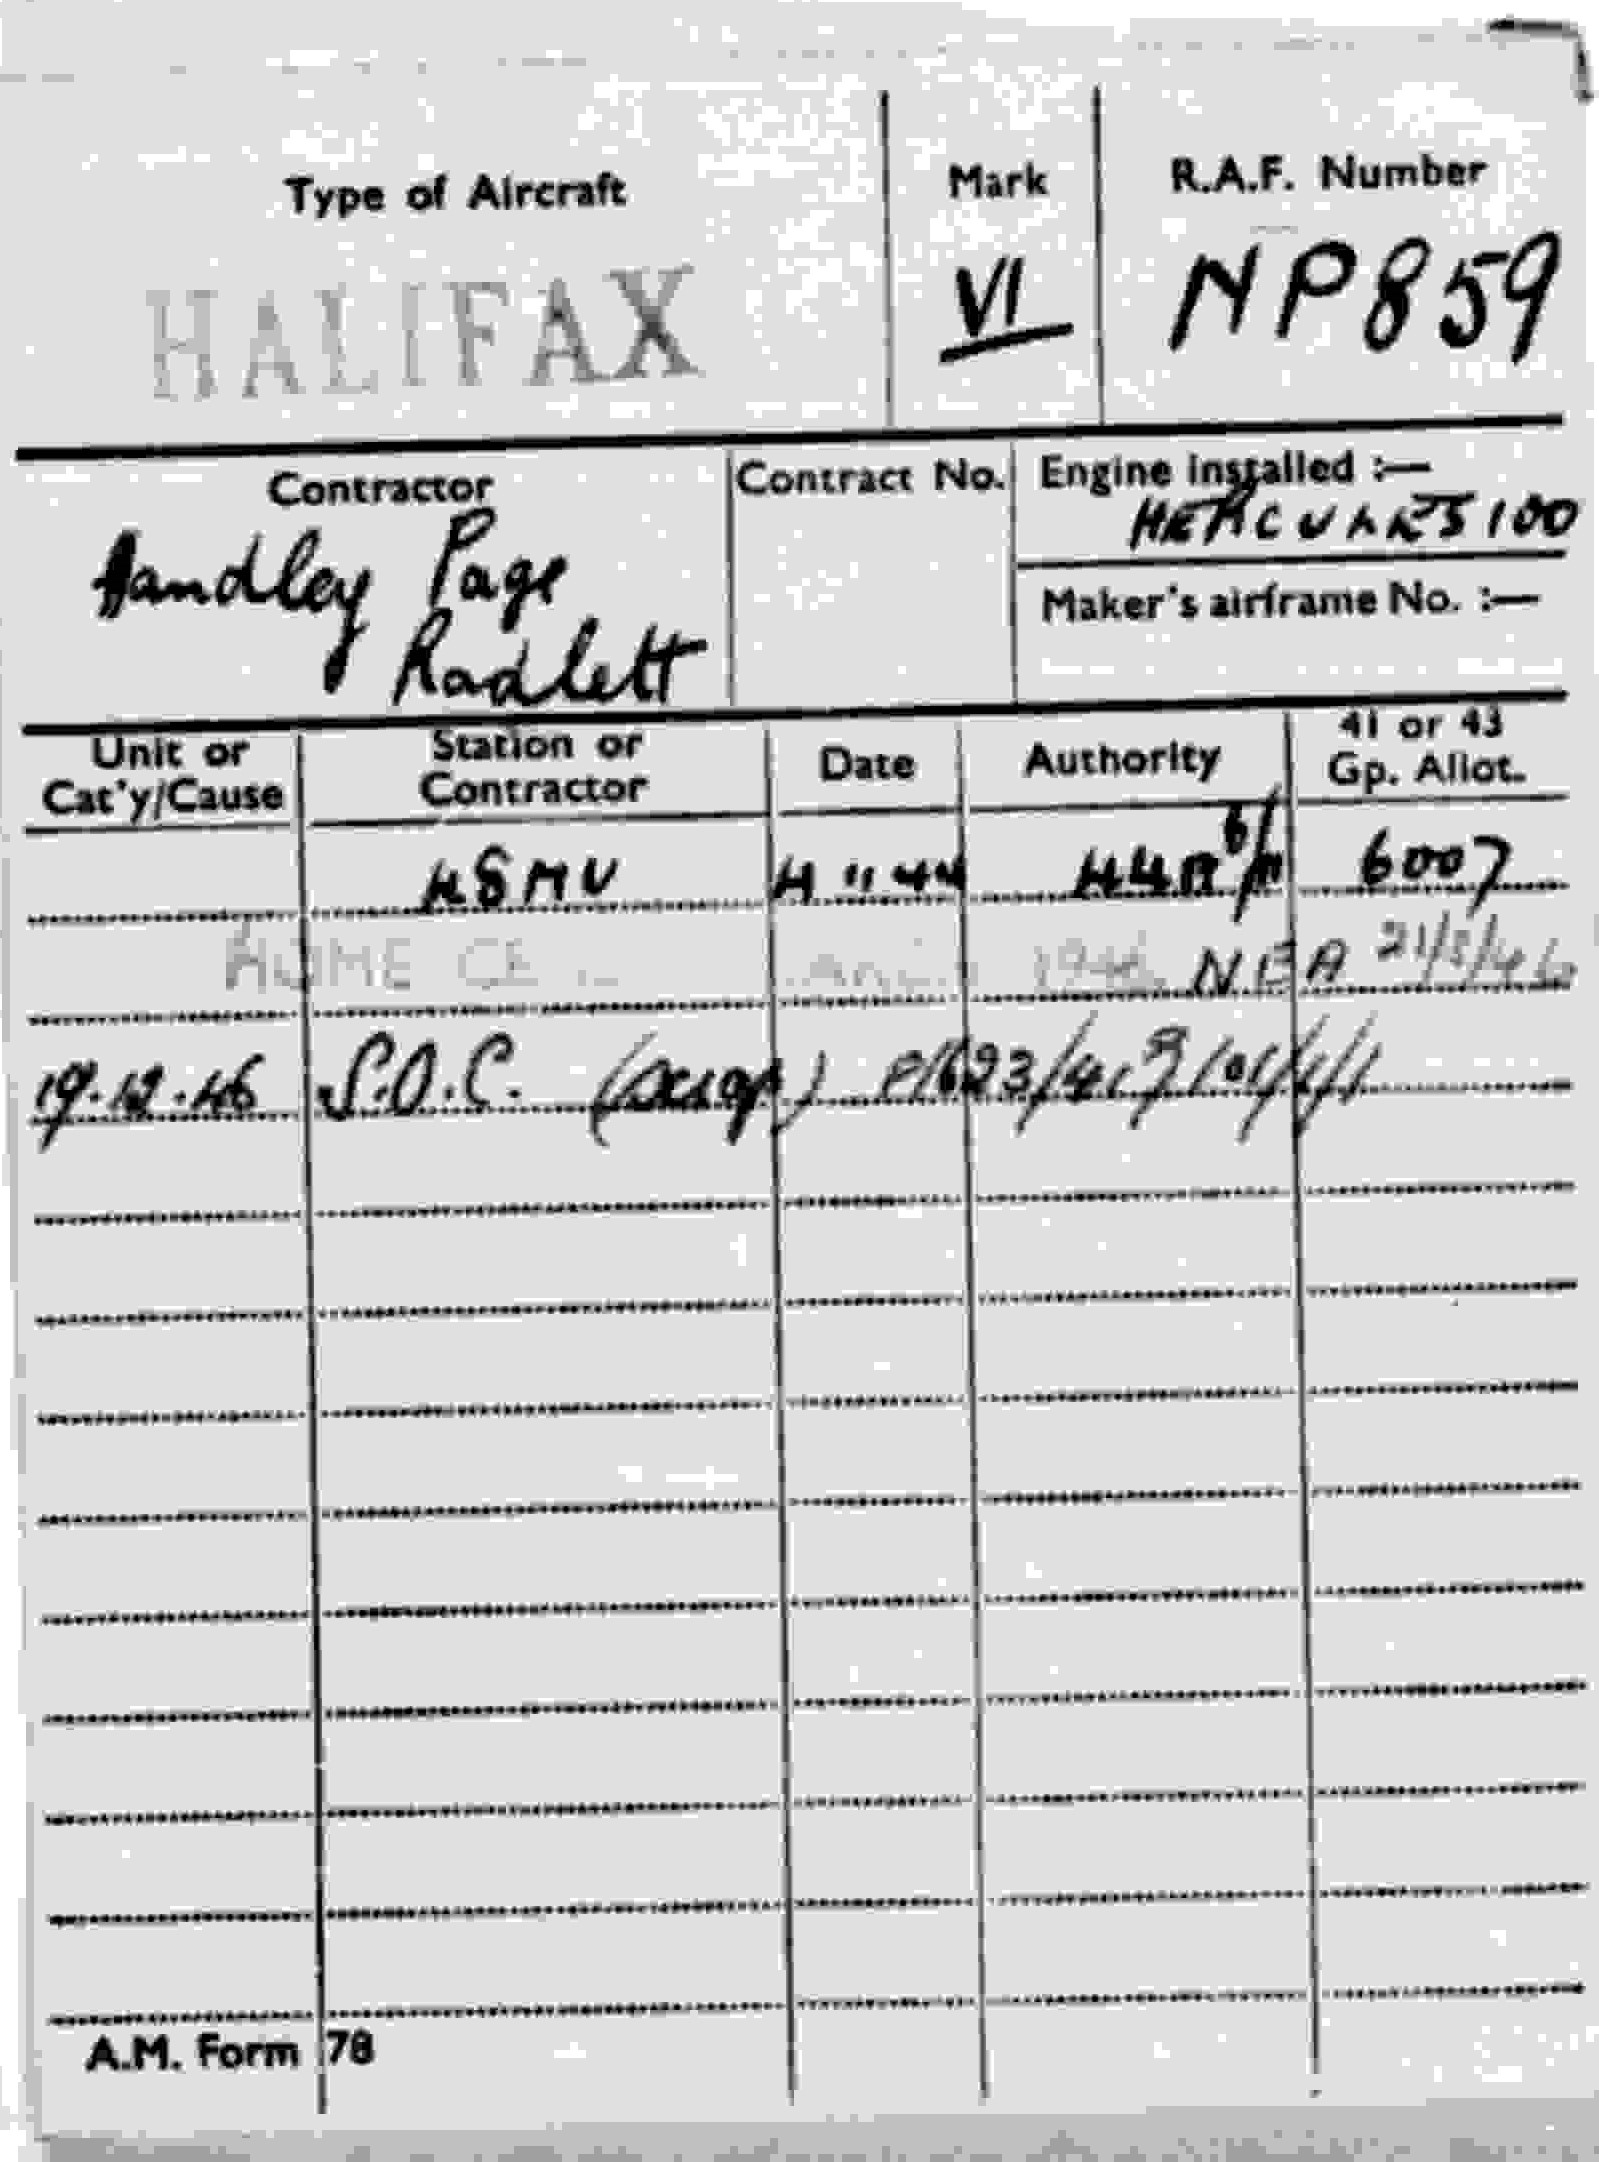 Type of Aircraft Mark R.A.F. Number
HALIFAX VI NP859
Contractor Contract No. Engine installed :—
HERCULES 100
Handley Page
Radlett
Maker's airframe No. :—
Unit or Cat'y/Cause Station or Contractor Date Authority 41 or 43 Gp. Allot.
48 MU 4 11 44 6007
HOME NEA 21/5/46
19.12.46 S.O.C. (scrap)
A.M. Form 78